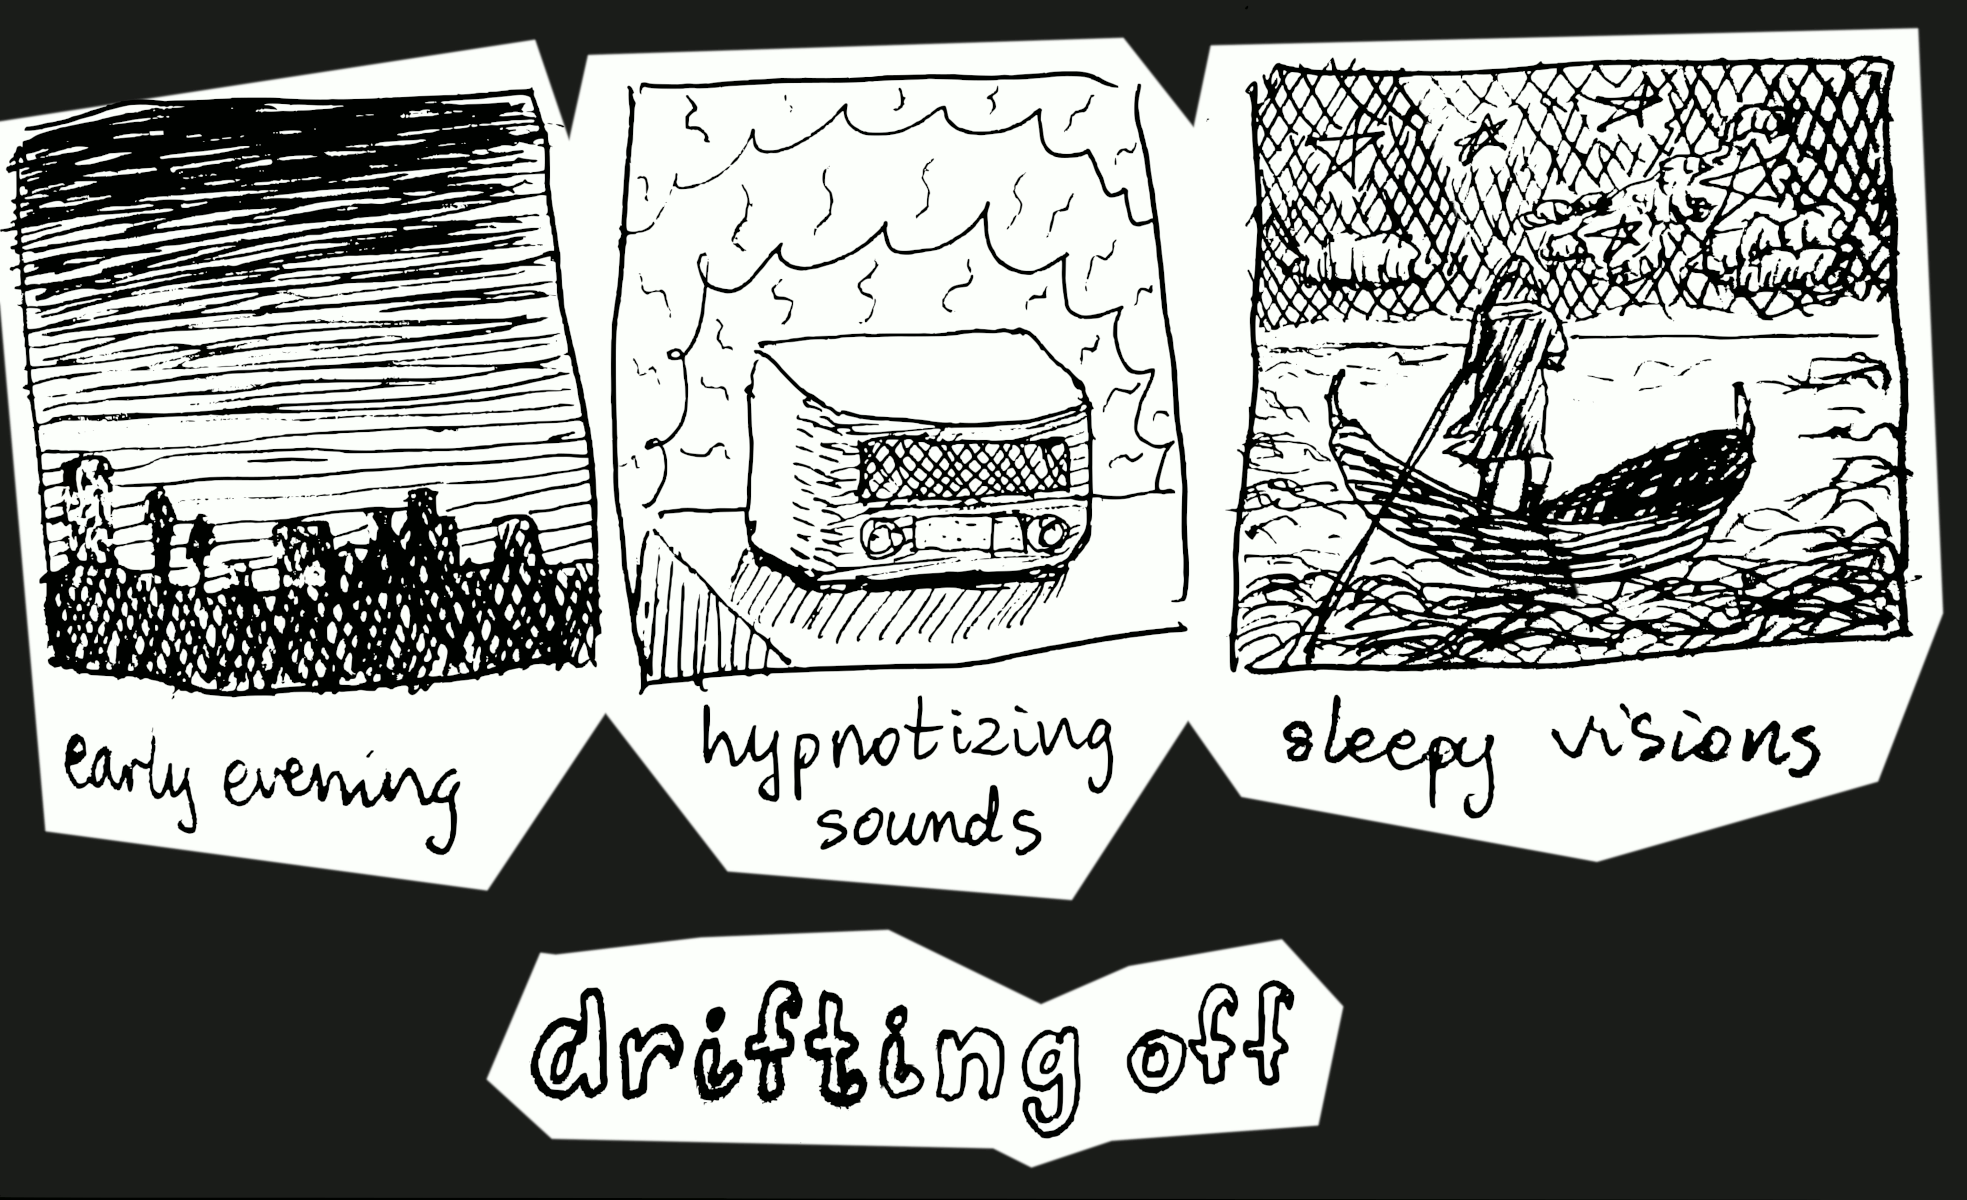 early evening
hypnotizing
sounds
sleepy visions
drifting off